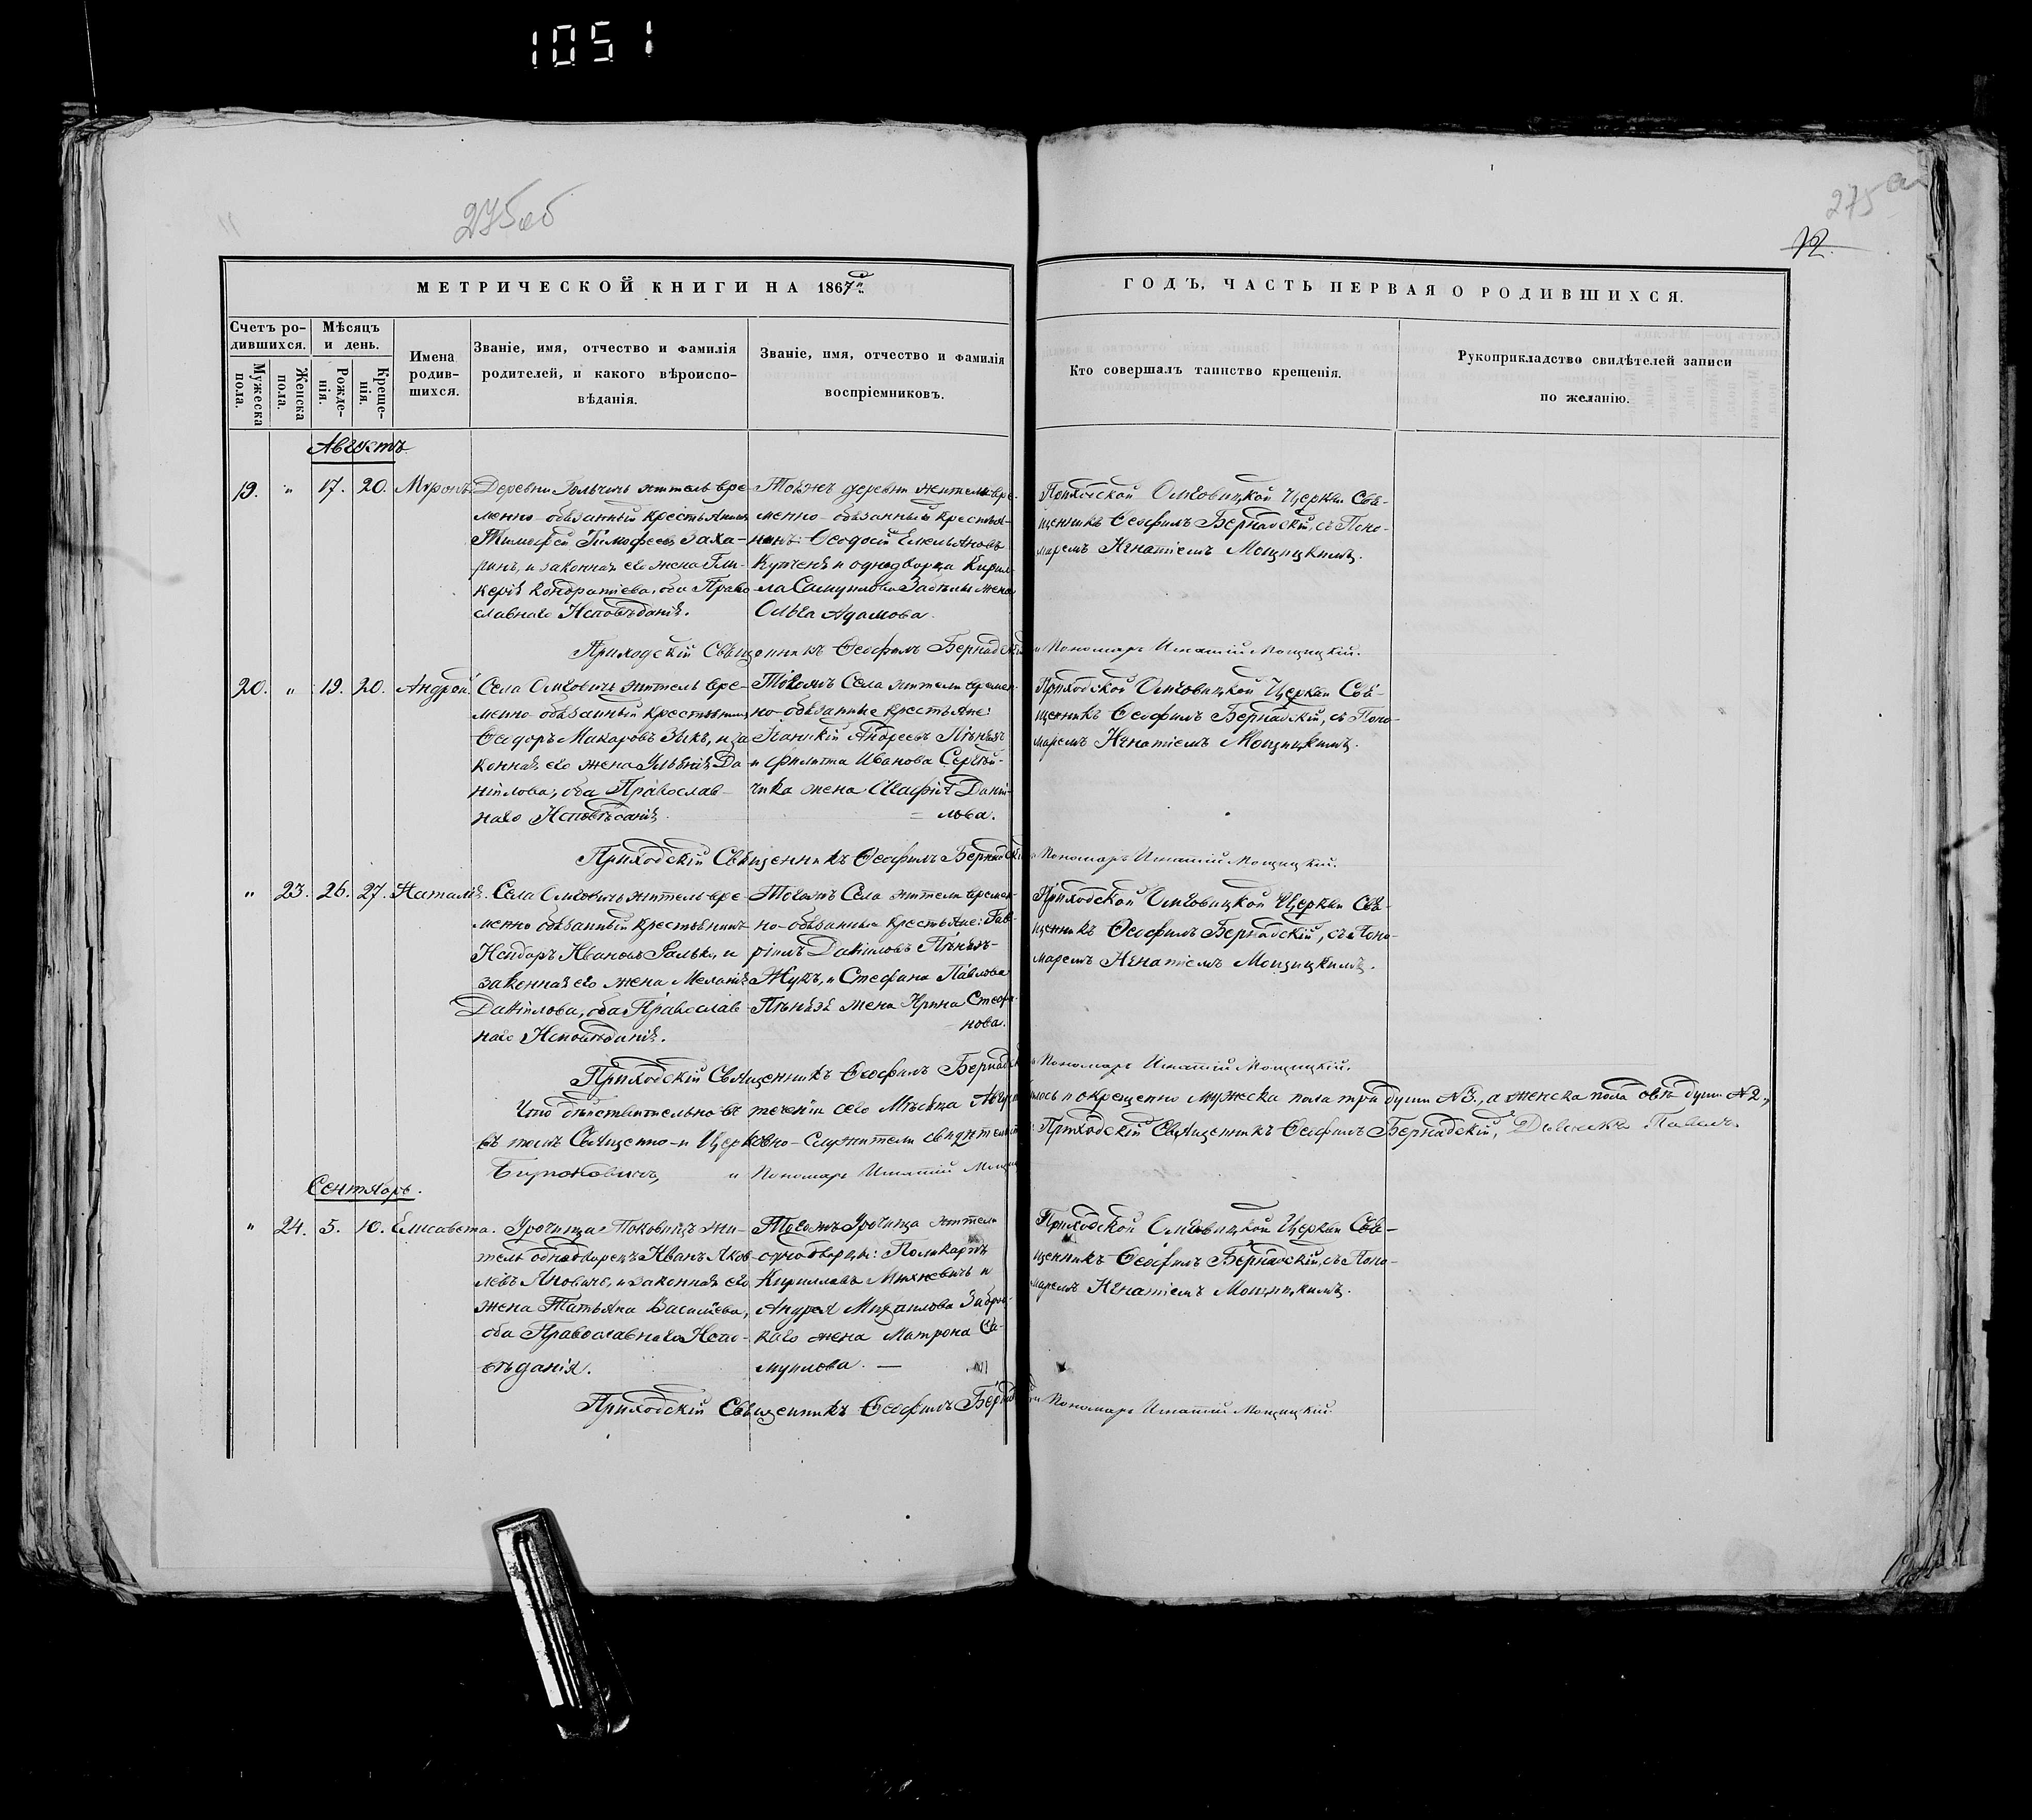 1051
275об
275а
12.
МЕТРИЧЕСКОЙ КНИГИ НА 1867й
ГОДЪ, ЧАСТЬ ПЕРВАЯ О РОДИВШИХСЯ.
Счетъ родившихся.
Мужеска пола.
Женска пола.
Мѣсяцъ и день.
Рожденія.
Крещенія.
Имена родившихся.
Званіе, имя, отчество и фамилія
родителей, и какого вѣроиспо-
вѣданія.
Званіе, имя, отчество и фамилія
воспріемниковъ.
Кто совершалъ таинство крещенія.
Рукоприкладство свидѣтелей записи
по желанію.
Августъ
19. " 17. 20. Миронъ
Деревни житель вре-
менно-обязанный крестьянинъ
Тимофей Тимофеевъ Заха-
ринъ, и законная его жена Гли-
керія Кондратіева, оба Право
славнаго Исповѣданія.
Тоежъ деревни житель вре-
менно-обязанный крестья-
нинъ: Ѳеодосій Емельяновъ
и однодворца Кирил
ла Самуилова жена
Ольга Адамова.
Приходской Церкви Свя-
щенникъ Ѳеофилъ Бернадскій, съ Поно-
маремъ Игнатіемъ Мощицкимъ.
Приходскій Священникъ Ѳеофилъ Бернадскій Пономарь Игнатій Мощицкій.
20. " 19. 20. Андрей
Села житель вре-
менно-обязанный крестьянинъ
Ѳедоръ Макаровъ и за
конная его жена Ульянія Да
ніилова, оба Православ-
наго Исповѣданія.
Тогожъ Села жители времен-
но-обязанные крестьяне:
Андреевъ
и Филиппа Иванова
жена Агафія Дании-
лова.
Приходской Церкви Свя-
щенникъ Ѳеофилъ Бернадскій, съ Поно-
маремъ Игнатіемъ Мощицкимъ.
Приходскій Священникъ Ѳеофилъ Бернадскій Пономарь Игнатій Мощицкій.
" 23. 26. 27. Наталія.
Села житель вре-
менно обязанный крестьянинъ
Исидоръ Ивановъ и
законная его жена Меланія
Даніилова, оба Православ
наго Исповѣданія.
Тогожъ Села жители времен-
но-обязанные крестьяне: Гав-
ріилъ Даніиловъ
Жукъ, и Стефана Павлова
жена Ирина Стефа-
нова.
Приходской Церкви Свя-
щенникъ Ѳеофилъ Бернадскій, съ Поно-
маремъ Игнатіемъ Мощицкимъ.
Приходскій Священникъ Ѳеофилъ Бернадскій Пономарь Игнатій Мощицкій.
Что дѣйствительно въ теченіи сего Мѣсяца и окрещено мужеска пола три души №3., а женска пола двѣ души №2.,
въ томъ Священно-и Церковно-Служители Приходскій Священникъ Ѳеофилъ Бернадскій,
и Пономарь Игнатій
Сентябрь.
" 24. 5. 10. Елисавета.
Урочища жи-
тель однодворецъ Иванъ Яков
левъ и законная его
жена Татьяна Василіева,
оба Православнаго Испо-
вѣданія.
Тогожъ Урочища жители
однодворцы: Поликарпъ
Кирилловъ Михневичъ и
Андрея Михаилова
жена Матрона Са-
муилова. —
Приходской Церкви Свя-
щенникъ Ѳеофилъ Бернадскій, съ Поно-
маремъ Игнатіемъ Мощицкимъ.
Приходскій Священникъ Ѳеофилъ Пономарь Игнатій Мощицкій.